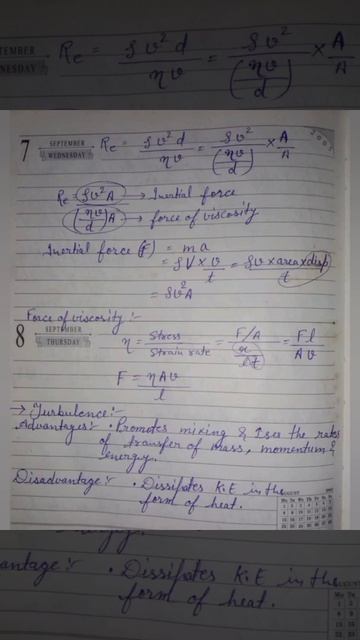 TEMBER
NESDAY
Re = ρv²d / ηv = ρv² / (ηv/d) × A/A
7 SEPTEMBER WEDNESDAY 2005
Re = ρv²d / ηv = ρv² / (ηv/d) × A/A
Re = ρv²A → Inertial force
(ηv/d)A → force of viscosity
Inertial force (F) = ma
= ρV × v/t = ρv × area × disp / t
= ρv²A
Force of viscosity :-
8 SEPTEMBER THURSDAY
η = Stress / Strain rate = F/A / = Fl / Av
F = ηAv / l
→ Turbulence :-
Advantages :- • Promotes mixing & ↑ses the rates
of transfer of mass, momentum &
energy.
Disadvantage :- • Dissipates K.E in the
form of heat.
AUGUST
antage :- • Dissipates K.E in the
form of heat.
AUGUST